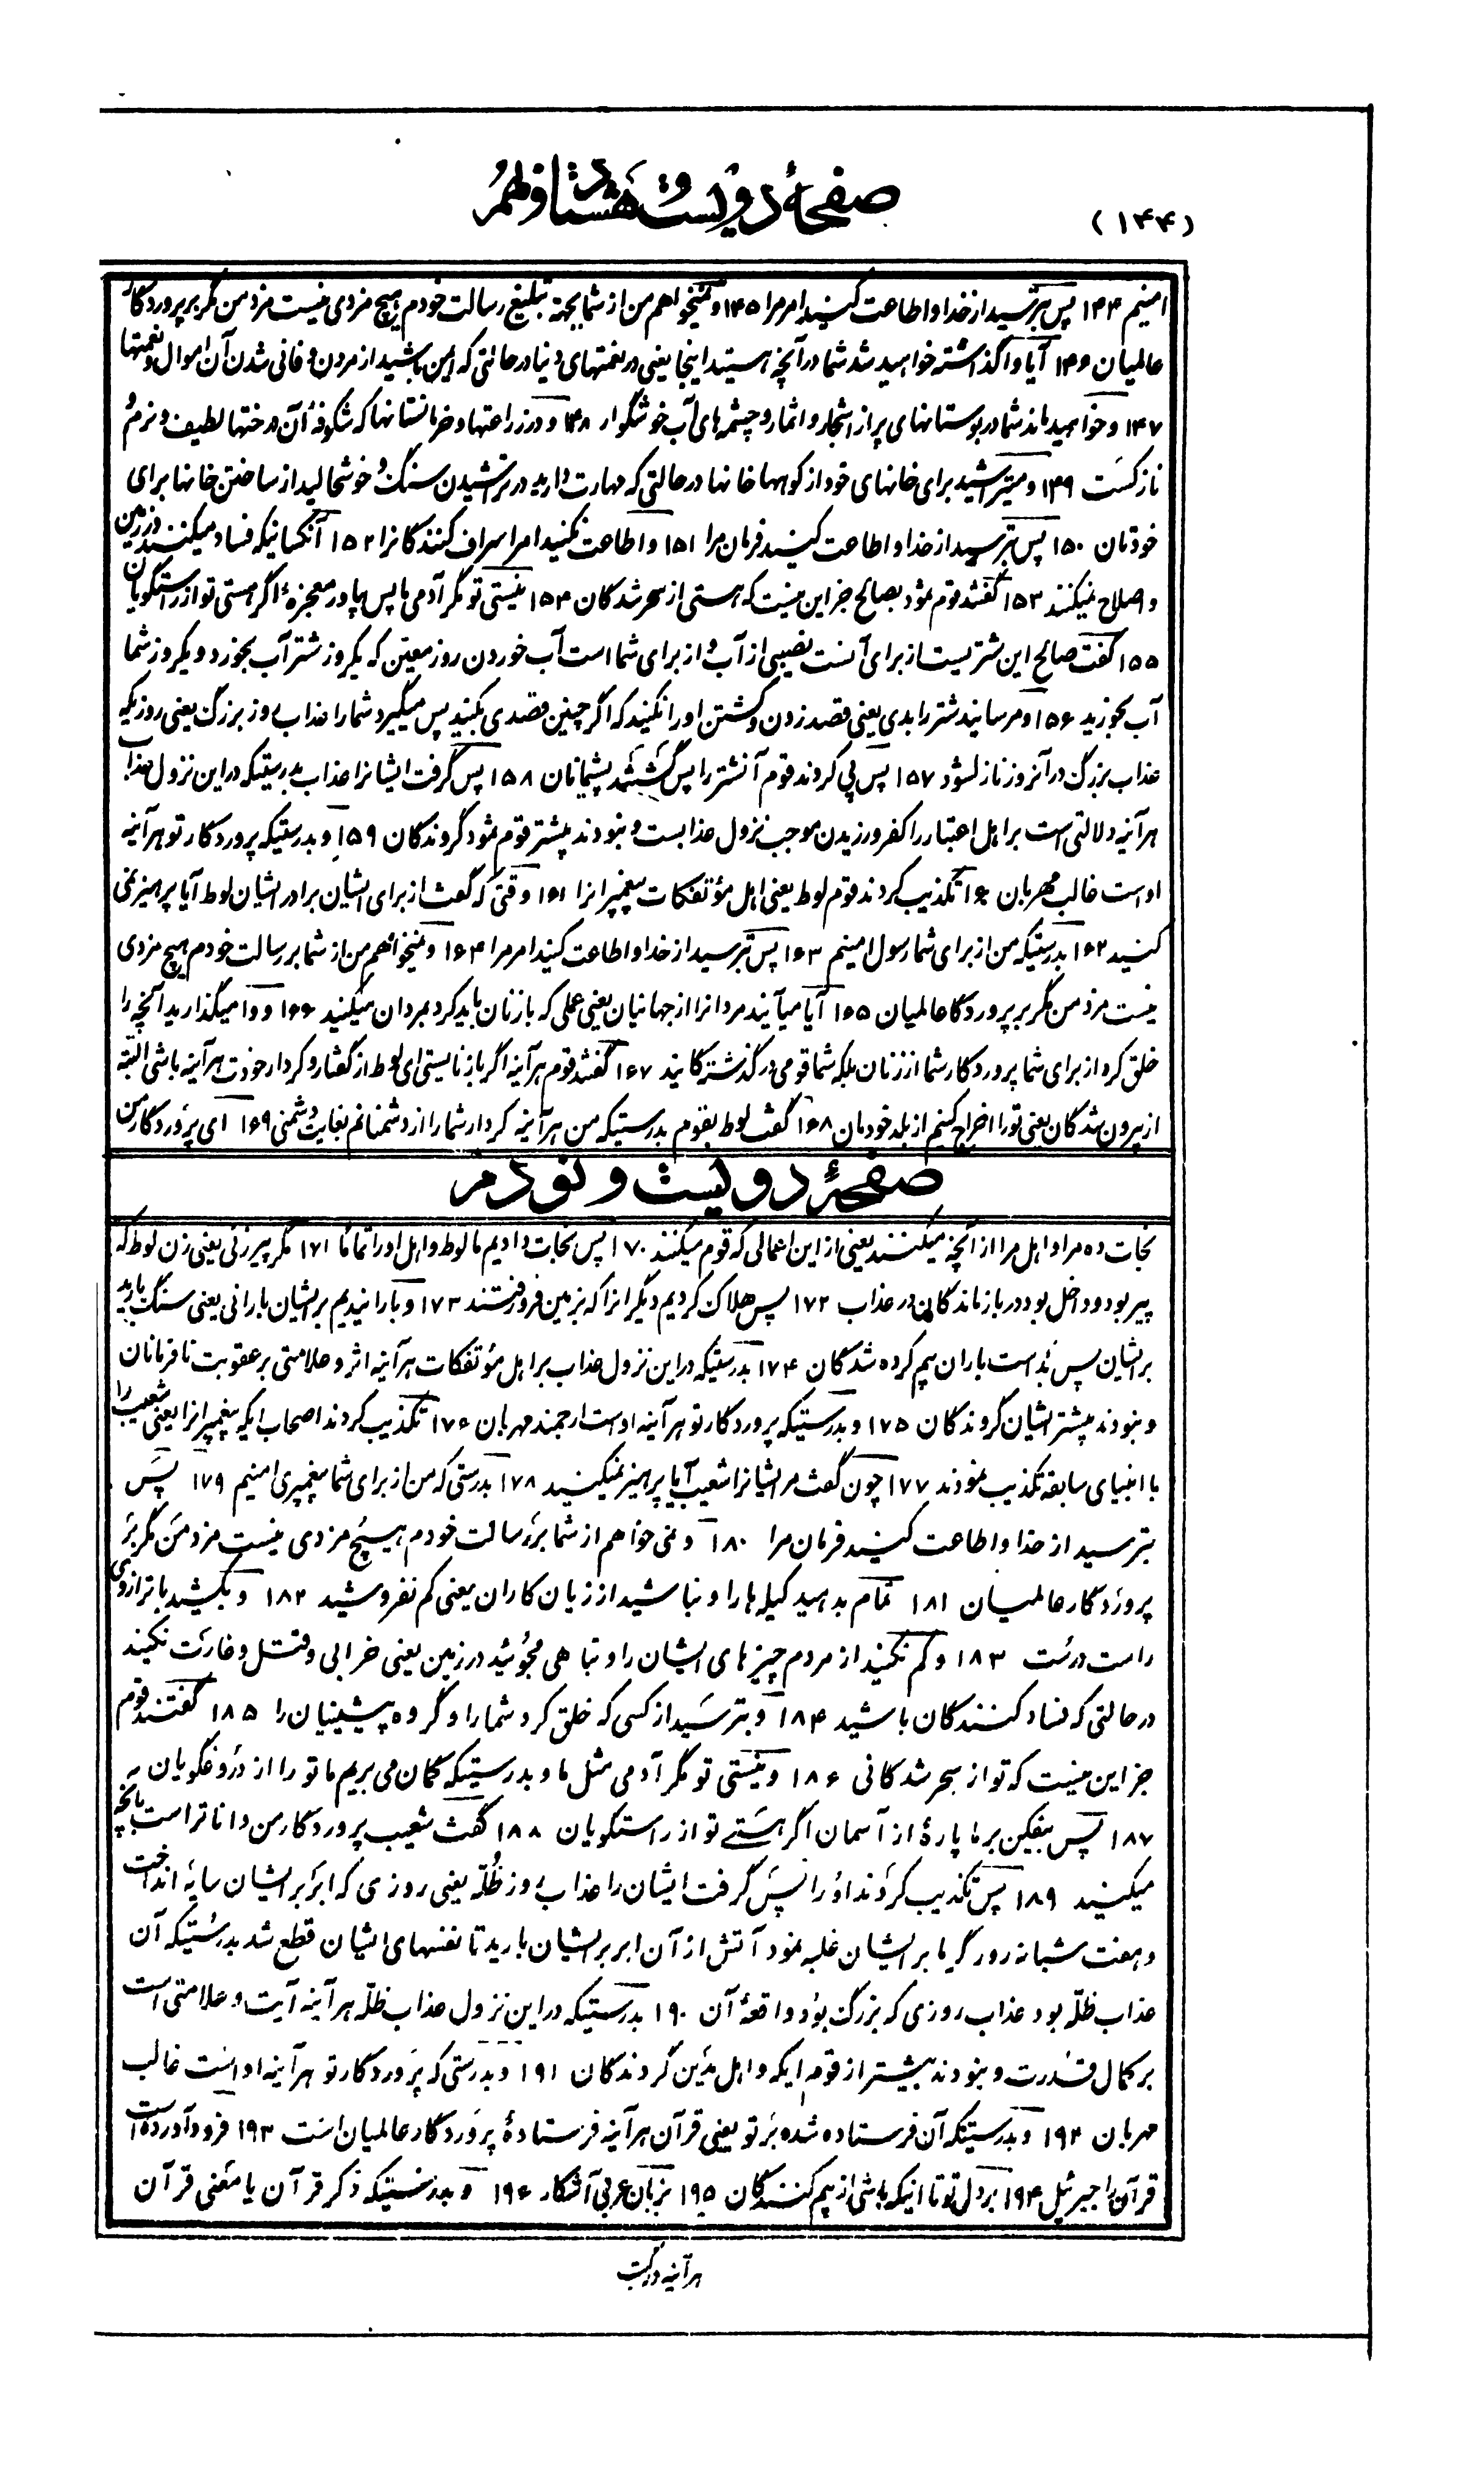 صفحهٔ دویست و هشتاد و نهم
(۱۴۴)
امینم ۱۴۴ پس بترسید از خدا و اطاعت کنید امر مرا ۱۴۵ و نمیخواهم من از شما بجهة تبلیغ رسالت خودم هیچ مزدی نیست مزد من مگر بر پروردگار
عالمیان ۱۴۶ آیا واگذاشته خواهید شد شما در آنچه هستید اینجا یعنی در نعمتهای دنیا در حالتی که ایمن باشید از مردن و فانی شدن آن اموال و نعمتها
۱۴۷ و خواهید ماند شما در بوستانهای پر از اشجار و اثمار و چشمه‌های آب خوشگوار ۱۴۸ و در زراعتها و خرمانستانها که شکوفهٔ آن درختها لطیف و نرم و
نازکست ۱۴۹ و میتراشید برای خانهای خود از کوهها خانها در حالتی که مهارت دارید در تراشیدن سنگ و خوشحالید از ساختن خانها برای
خودتان ۱۵۰ پس بترسید از خدا و اطاعت کنید فرمان مرا ۱۵۱ و اطاعت نکنید امر اسراف کنندگانرا ۱۵۲ آنکسانیکه فساد میکنند در زمین
و اصلاح نمیکنند ۱۵۳ گفتند قوم ثمود بصالح جز این نیست که هستی از سحر شدگان ۱۵۴ نیستی تو مگر آدمی ما پس بیاور معجزهٔ اگر هستی تو از راستگویان
۱۵۵ گفت صالح این شتریست از برای آنست نصیبی از آب و از برای شما است آب خوردن روز معین که یکروز شتر آب بخورد و یکروز شما
آب بخورید ۱۵۶ و مرسانید شتر را بدی یعنی قصد زدن و کشتن او را نکنید که اگر چنین قصدی بکنید پس میگیرد شما را عذاب روز بزرگ یعنی روزیکه
عذاب بزرگ در آنروز نازل شود ۱۵۷ پس پی کردند قوم آنشتر را پس گشتند پشیمانان ۱۵۸ پس گرفت ایشانرا عذاب بدرستیکه در این نزول عذاب
هرآینه دلالتی است بر اهل اعتبار را کفر ورزیدن موجب نزول عذابست و نبودند بیشتر قوم ثمود گروندگان ۱۵۹ و بدرستیکه پروردگار تو هرآینه
او است غالب مهربان ۱۶۰ تکذیب کردند قوم لوط یعنی اهل مؤتفکات پیغمبرانرا ۱۶۱ وقتی که گفت از برای ایشان برادر ایشان لوط آیا پرهیز نمی
کنید ۱۶۲ بدرستیکه من از برای شما رسول امینم ۱۶۳ پس بترسید از خدا و اطاعت کنید امر مرا ۱۶۴ و نمیخواهم من از شما بر رسالت خودم هیچ مزدی
نیست مزد من مگر بر پروردگار عالمیان ۱۶۵ آیا میآئید مردانرا از جهانیان یعنی عملی که با زنان باید کرد بمردان میکنید ۱۶۶ و وا میگذارید آنچه را
خلق کرد از برای شما پروردگار شما از زنان بلکه شما قومی درگذشتگانید ۱۶۷ گفتند قوم هرآینه اگر باز نایستی ای لوط از گفتار و کردار خودت هرآینه باشی البته
از بیرون شدگان یعنی تو را اخراج کنیم از بلد خودمان ۱۶۸ گفت لوط بقوم بدرستیکه من هرآینه کردار شما را از دشمنانم بغایت دشمنی ۱۶۹ ای پروردگار من
صفحهٔ دویست و نودم
نجات ده مرا و اهل مرا از آنچه میکنند یعنی از این اعمالی که قوم میکنند ۱۷۰ پس نجات دادیم ما لوط و اهل او را تماماً ۱۷۱ مگر پیرزنی یعنی زن لوط که
پیر بود و داخل بود در بازماندگان در عذاب ۱۷۲ پس هلاک کردیم دیگرانرا که بزمین فرو رفتند ۱۷۳ و بارانیدیم بر ایشان بارانی یعنی سنگ بارید
بر ایشان پس بد است باران بیم کرده شدگان ۱۷۴ بدرستیکه در این نزول عذاب بر اهل مؤتفکات هرآینه اثر و علامتی بر عقوبت نافرمانان
و نبودند بیشتر ایشان گروندگان ۱۷۵ و بدرستیکه پروردگار تو هرآینه اوست ارجمند مهربان ۱۷۶ تکذیب کردند اصحاب ایکه پیغمبرانرا یعنی شعیب را
با انبیای سابقه تکذیب نمودند ۱۷۷ چون گفت مر ایشانرا شعیب آیا پرهیز نمیکنید ۱۷۸ بدرستی که من از برای شما پیغمبری امینم ۱۷۹ پس
بترسید از خدا و اطاعت کنید فرمان مرا ۱۸۰ و نمی خواهم از شما بر رسالت خودم هیچ مزدی نیست مزد من مگر بر
پروردگار عالمیان ۱۸۱ تمام بدهید کیله‌ها را و نباشید از زیان کاران یعنی کم نفروشید ۱۸۲ و بکشید با ترازوی
راست درست ۱۸۳ و کم نکنید از مردم چیزهای ایشان را و تباهی مجوئید در زمین یعنی خرابی و قتل و غارت نکنید
در حالتی که فساد کنندگان باشید ۱۸۴ و بترسید از کسی که خلق کرد شما را و گروه پیشینیان را ۱۸۵ گفتند قوم
جز این نیست که تو از سحر شدگانی ۱۸۶ و نیستی تو مگر آدمی مثل ما و بدرستیکه گمان می بریم ما تو را از دروغگویان
۱۸۷ پس بیفکن بر ما پارهٔ از آسمان اگر هستی تو از راستگویان ۱۸۸ گفت شعیب پروردگار من داناتر است بآنچه
میکنید ۱۸۹ پس تکذیب کردند او را پس گرفت ایشان را عذاب روز ظُلّه یعنی روزی که ابر بر ایشان سایه انداخت
و هفت شبانه روز گرما بر ایشان غلبه نمود آتش از آن ابر بر ایشان بارید تا نفسهای ایشان قطع شد بدرستیکه آن
عذاب ظلّه بود عذاب روزی که بزرگ بود واقعهٔ آن ۱۹۰ بدرستیکه در این نزول عذاب ظلّه هرآینه آیت و علامتی است
بر کمال قدرت و نبودند بیشتر از قوم ایکه و اهل مدین گروندگان ۱۹۱ و بدرستی که پروردگار تو هرآینه او است غالب
مهربان ۱۹۲ و بدرستیکه آن فرستاده شده بر تو یعنی قرآن هرآینه فرستادهٔ پروردگار عالمیان است ۱۹۳ فرود آورده است
قرآن را جبرئیل ۱۹۴ بر دل تو تا اینکه باشی از بیم کنندگان ۱۹۵ بزبان عربی آشکار ۱۹۶ و بدرستیکه ذکر قرآن یا معنی قرآن
هرآینه در کتب